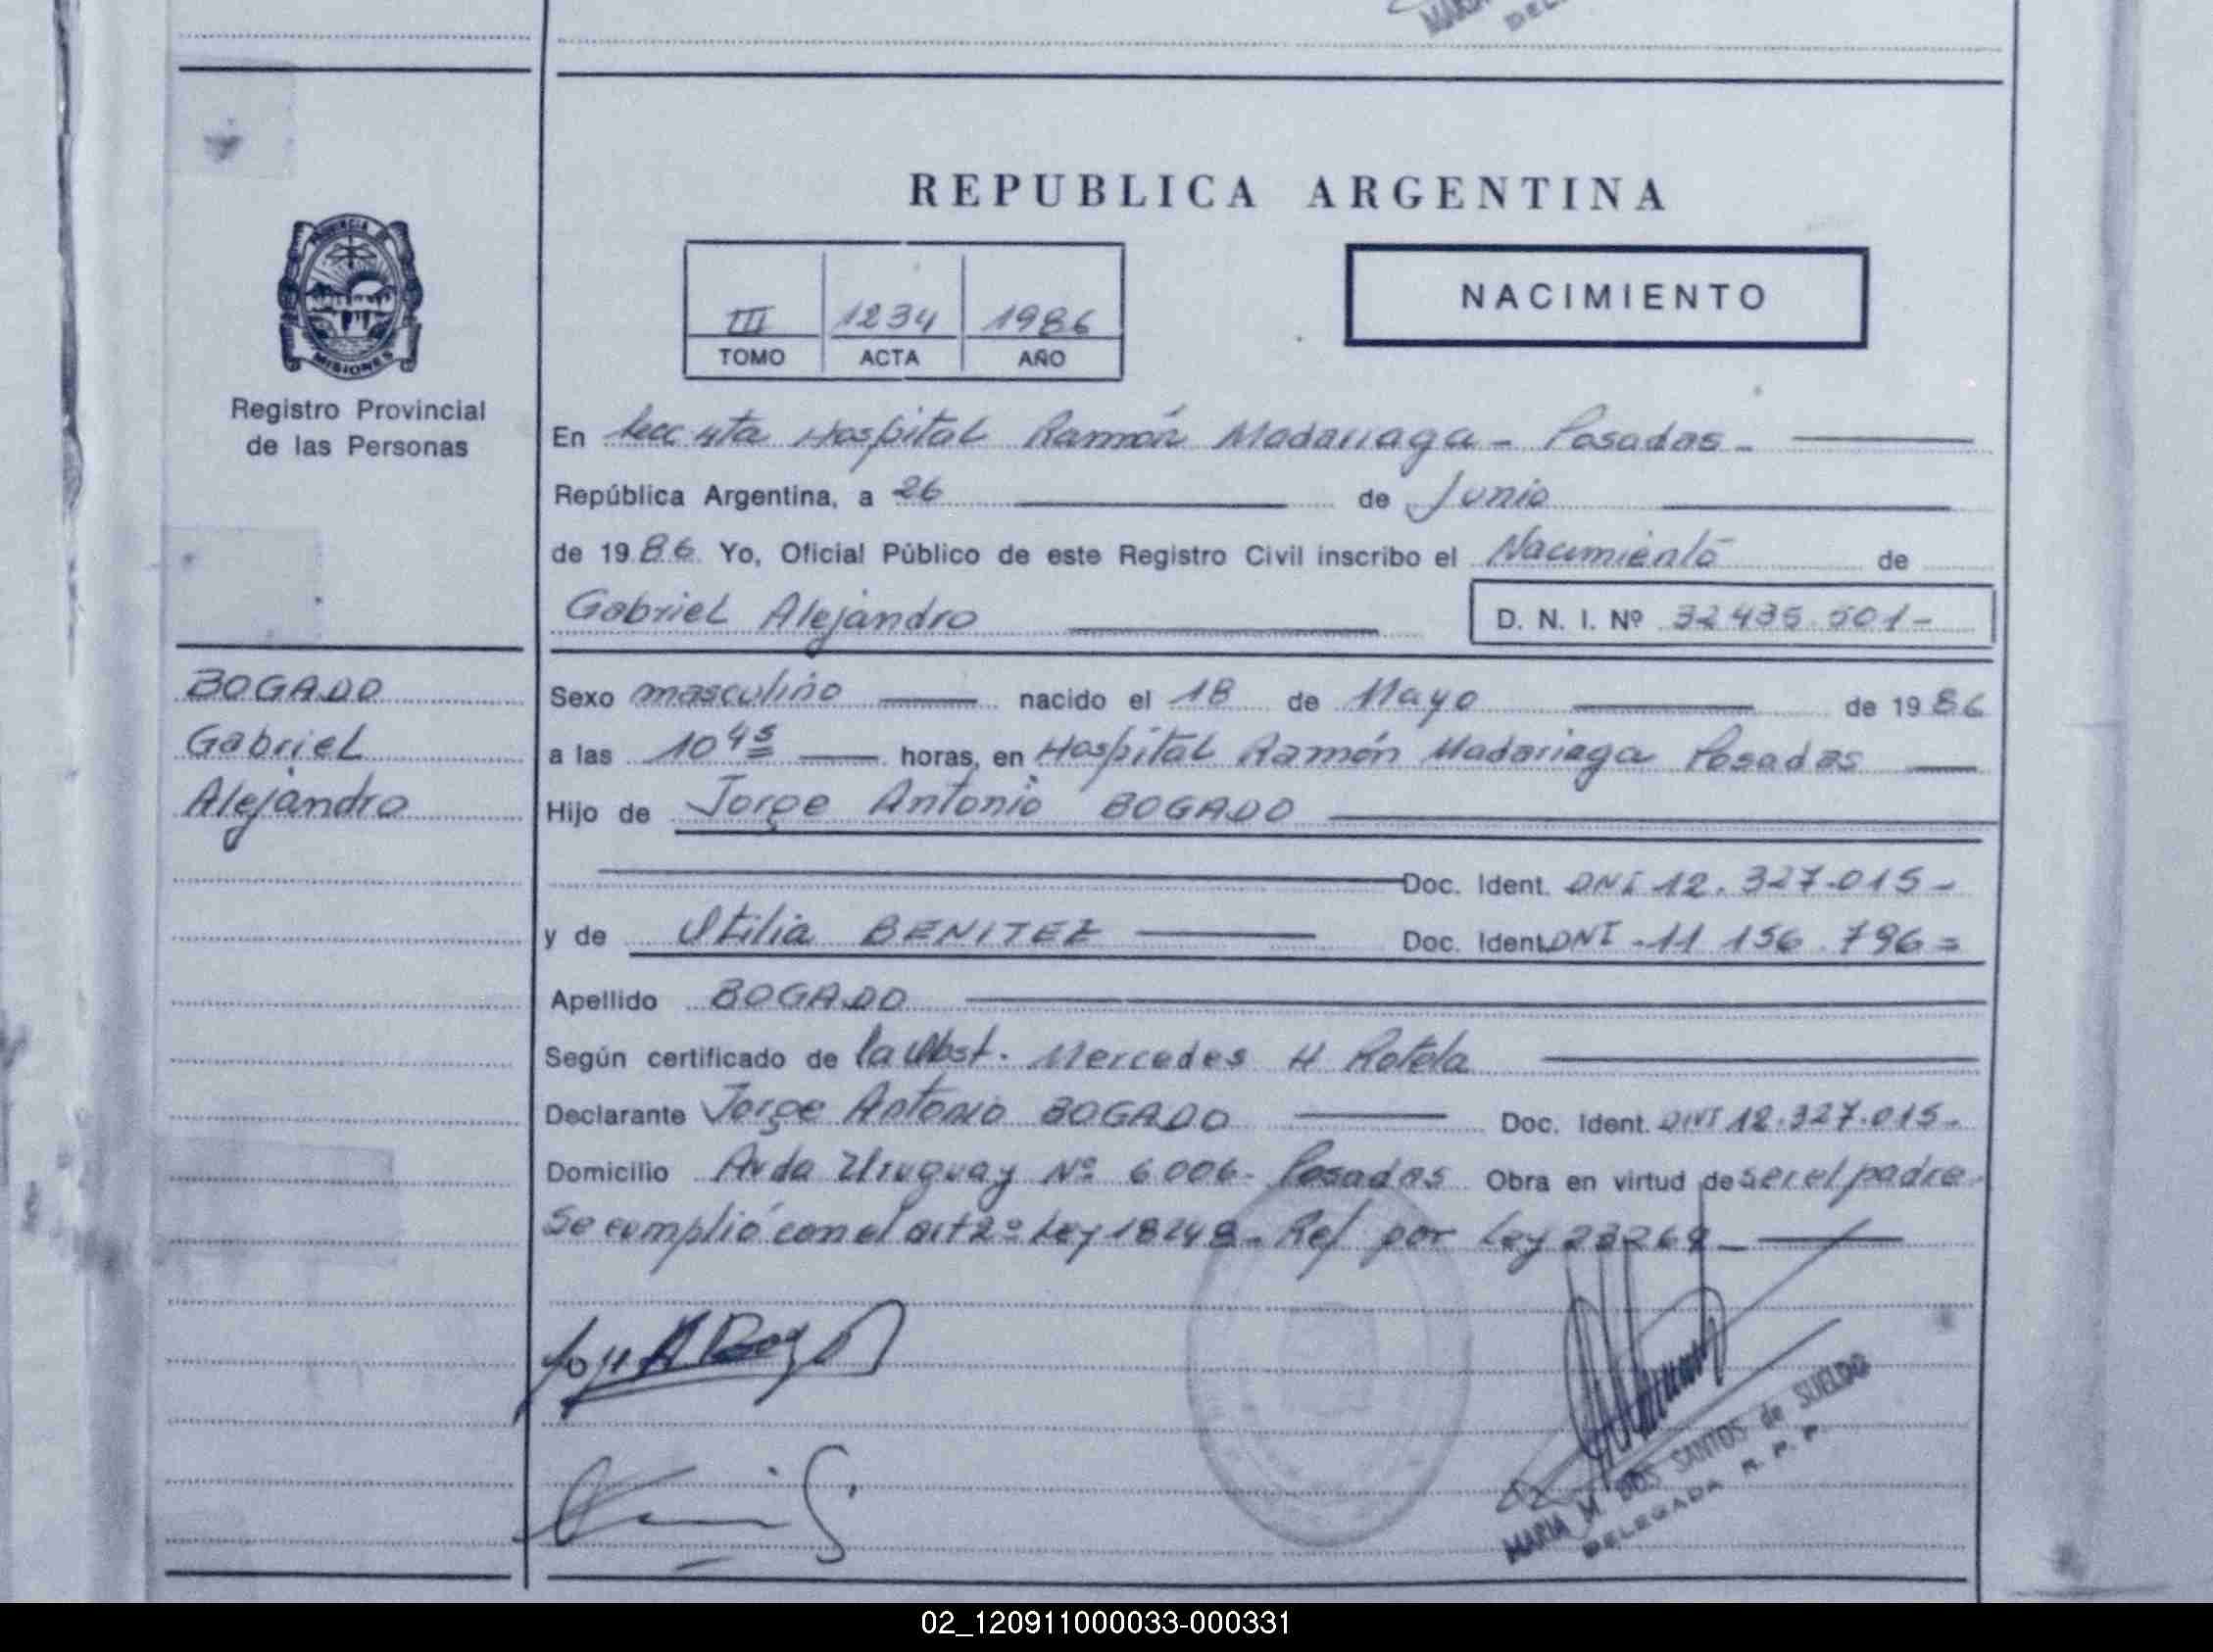 REPUBLICA ARGENTINA
PROVINCIA DE
MISIONES
Registro Provincial
de las Personas
III 1234 1986
TOMO ACTA AÑO
NACIMIENTO
En Secc 4ta Hospital Ramón Madariaga - Posadas -
República Argentina, a 26 de Junio
de 1986 Yo, Oficial Público de este Registro Civil inscribo el Nacimiento de
Gabriel Alejandro D. N. I. Nº 32435.501-
BOGADO
Gabriel
Alejandro
Sexo masculino nacido el 18 de Mayo de 1986
a las 10 45 horas, en Hospital Ramón Madariaga Posadas
Hijo de Jorge Antonio BOGADO
Doc. Ident. DNI 12.327.015-
y de Otilia BENITEZ Doc. Ident. DNI -11 156.796=
Apellido BOGADO
Según certificado de la Obst. Mercedes H Rotela
Declarante Jorge Antonio BOGADO Doc. Ident. DNI 12.327.015-
Domicilio Avda Uruguay Nº 6006- Posadas Obra en virtud de ser el padre.
Se cumplió con el art 2º Ley 18248- Ref por Ley 23264-
MARIA M. DOS SANTOS de SUELDO
DELEGADA R. P. P.
02_120911000033-000331